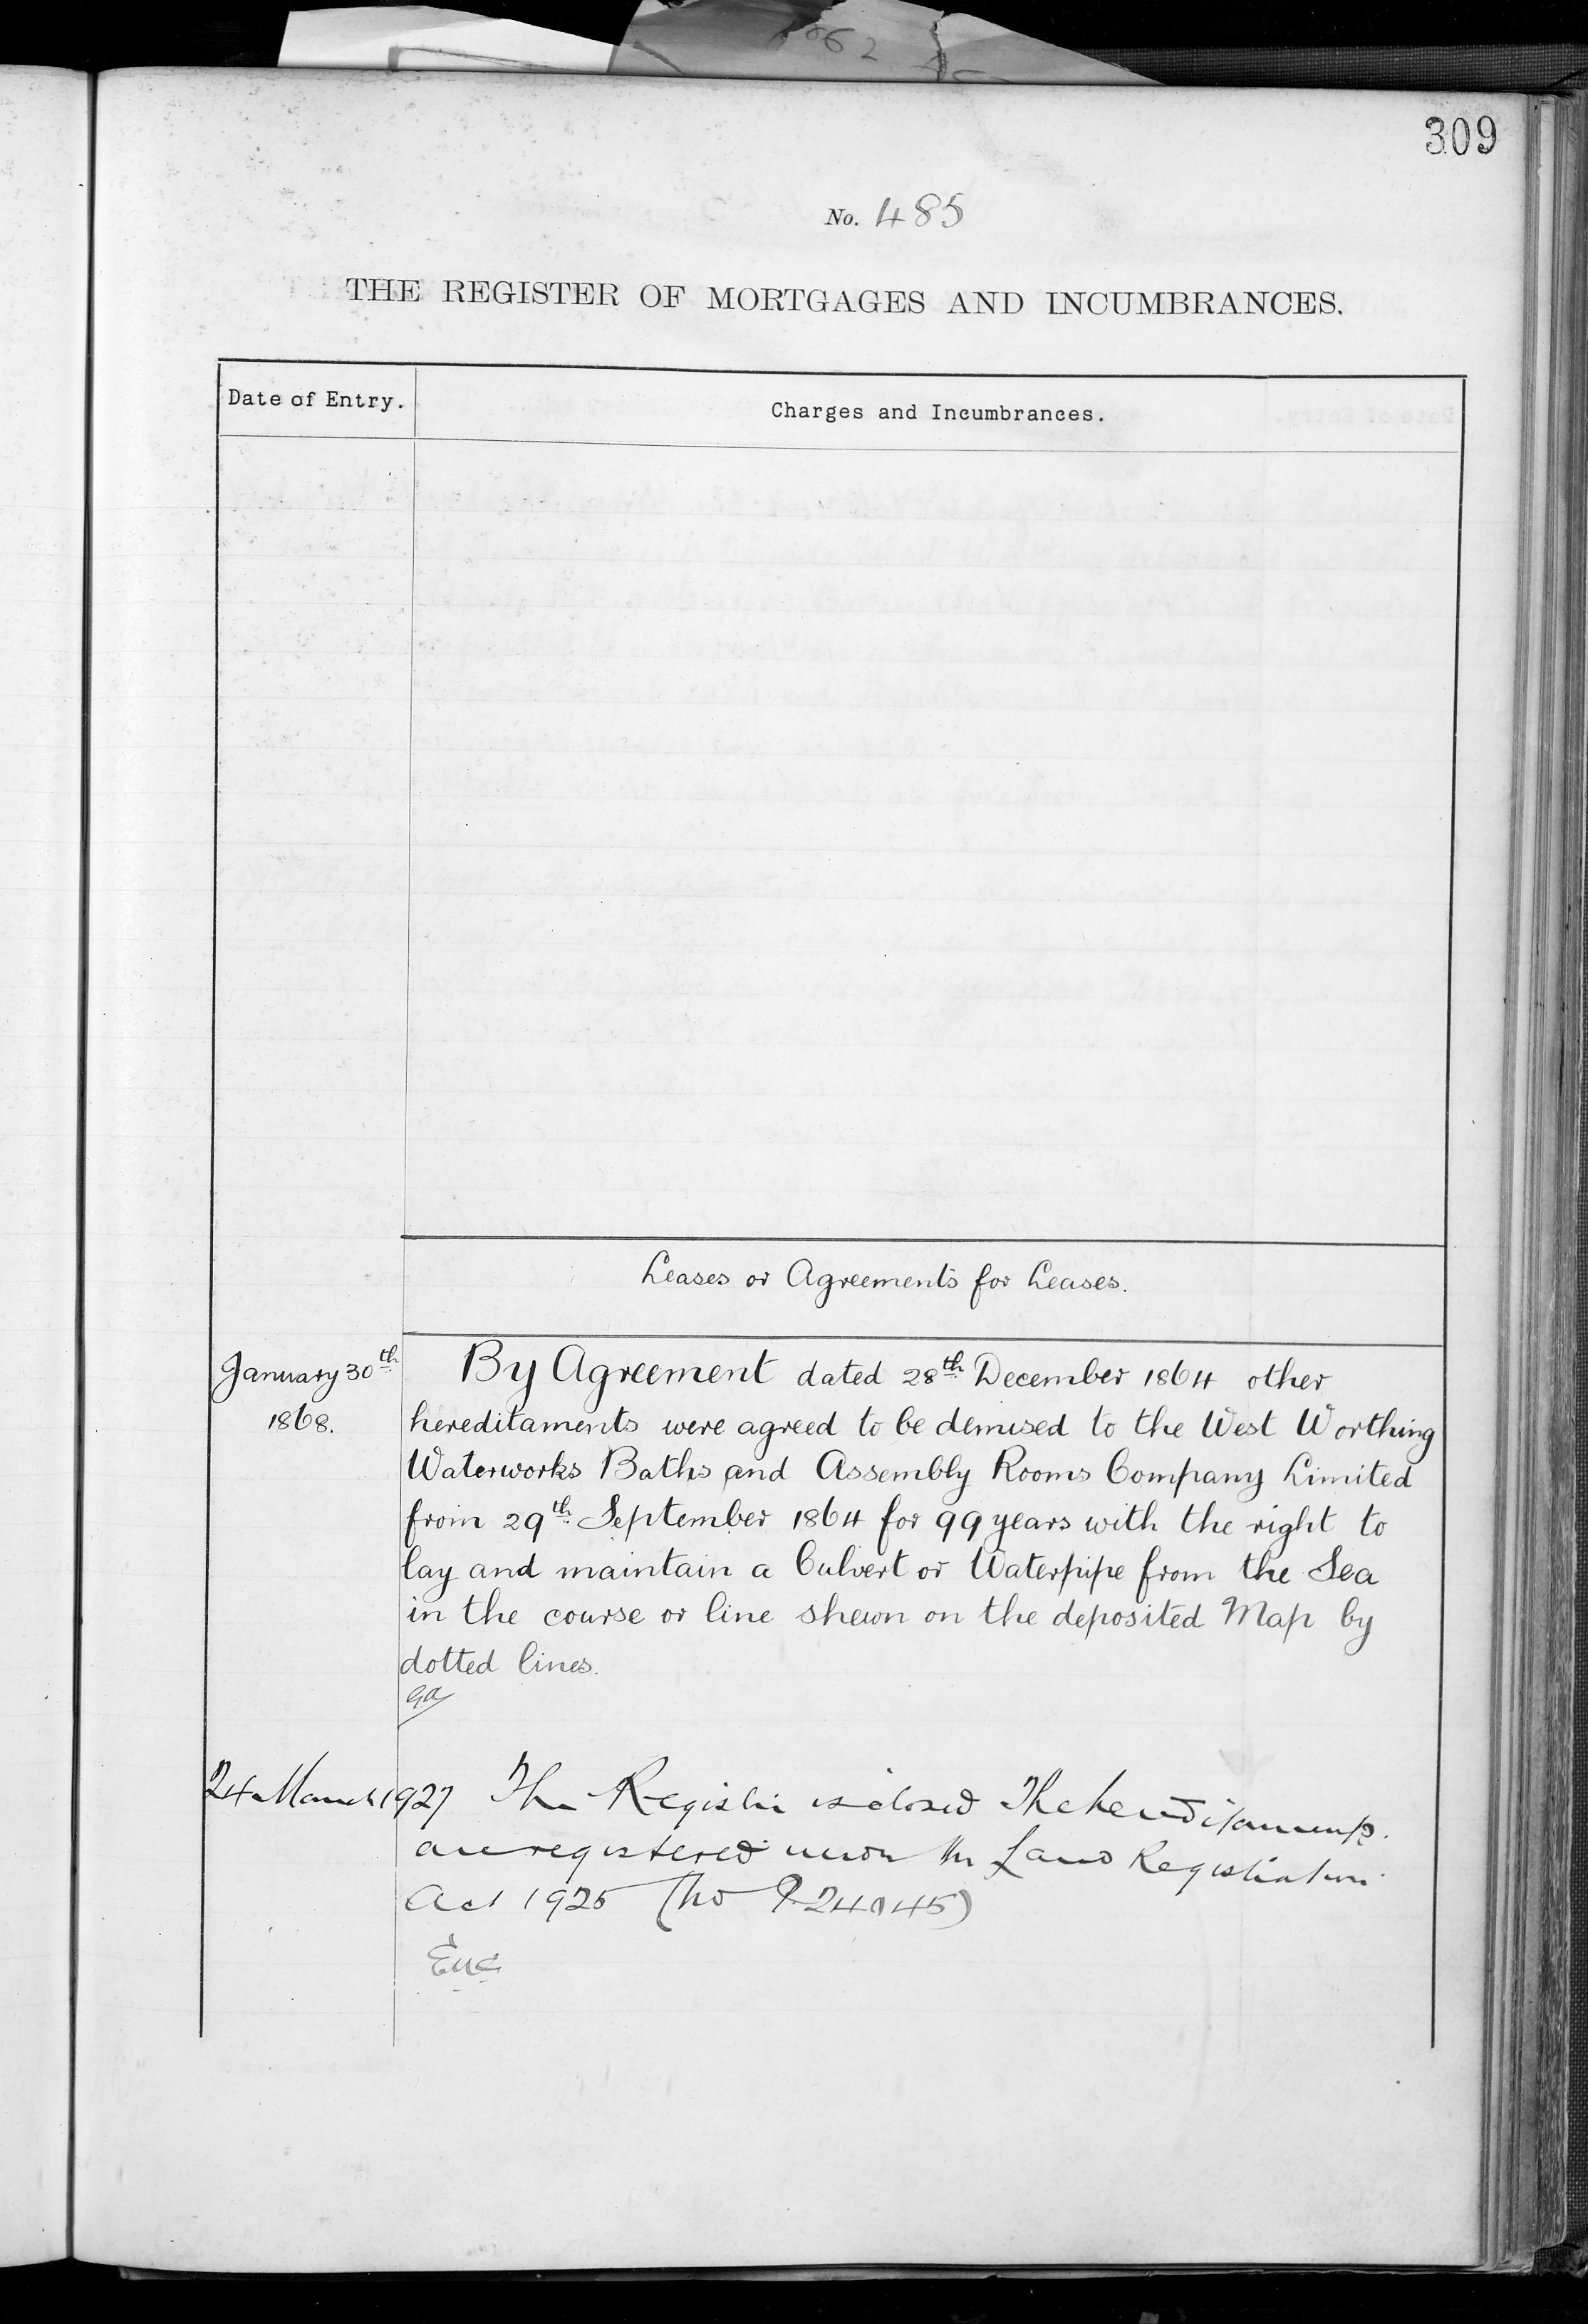 309
No. 485
THE REGISTER OF MORTGAGES AND INCUMBRANCES.
Date of Entry.
Charges and Incumbrances.
Leases or Agreements for Leases.
January 30th
1868.
By Agreement dated 28th December 1864 other
hereditaments were agreed to be demised to the West Worthing
Waterworks Baths and Assembly Rooms Company Limited
from 29th September 1864 for 99 years with the right to
lay and maintain a Culvert or Waterpipe from the Sea
in the course or line shewn on the deposited Map by
dotted lines.
24 March 1927 The Register is closed The hereditaments
are registered under the Land Registration
Act 1925 (No P 24045)